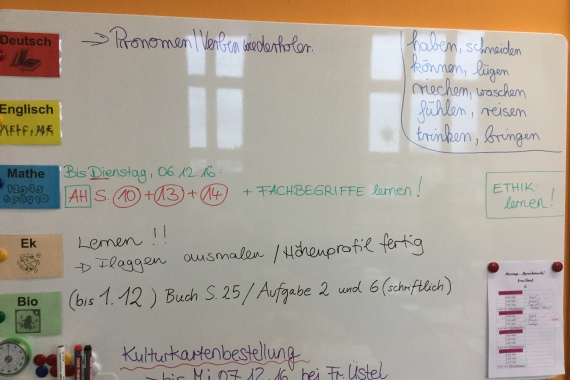 Deutsch
→ Pronomen/Verben wiederholen.
haben, schneiden
können, lügen
riechen, waschen
fühlen, reisen
trinken, bringen
Englisch
HELP, ME
Mathe
12345
678910
Bis Dienstag, 06.12.16:
AH S. 10 + 13 + 14 + FACHBEGRIFFE lernen!
ETHIK:
lernen!
Ek
Lernen!!
→ Flaggen ausmalen / Höhenprofil fertig
Bio
(bis 1.12) Buch S. 25 / Aufgabe 2 und 6 (schriftlich)
Kulturkartenbestellung
→ bis Mi 07.12.16 bei Fr. Ustel